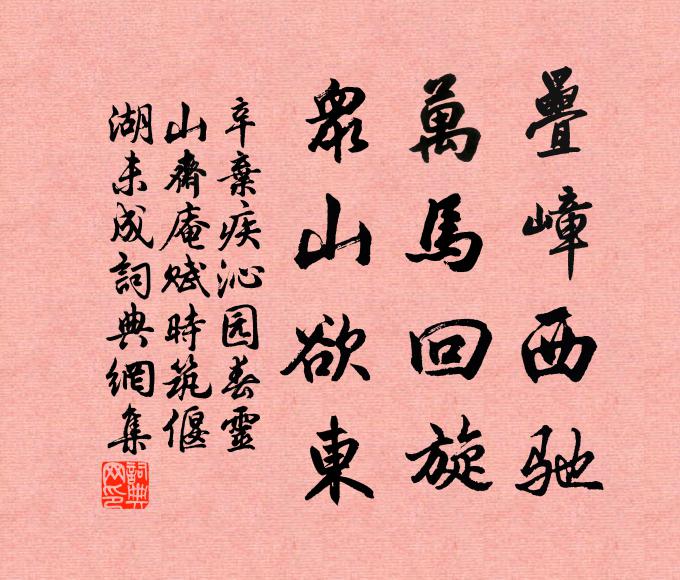 疊嶂西馳
萬馬回旋
衆山欲東
辛棄疾沁园春靈
山齋庵赋時筑偃
湖未成詞典網集
詞典网印